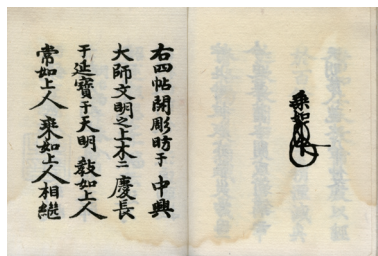 右四帖開彫昉于 中興
大師文明之上木二 慶長
于延寶于天明 教如上人
常如上人 乘如上人相繼
乘如